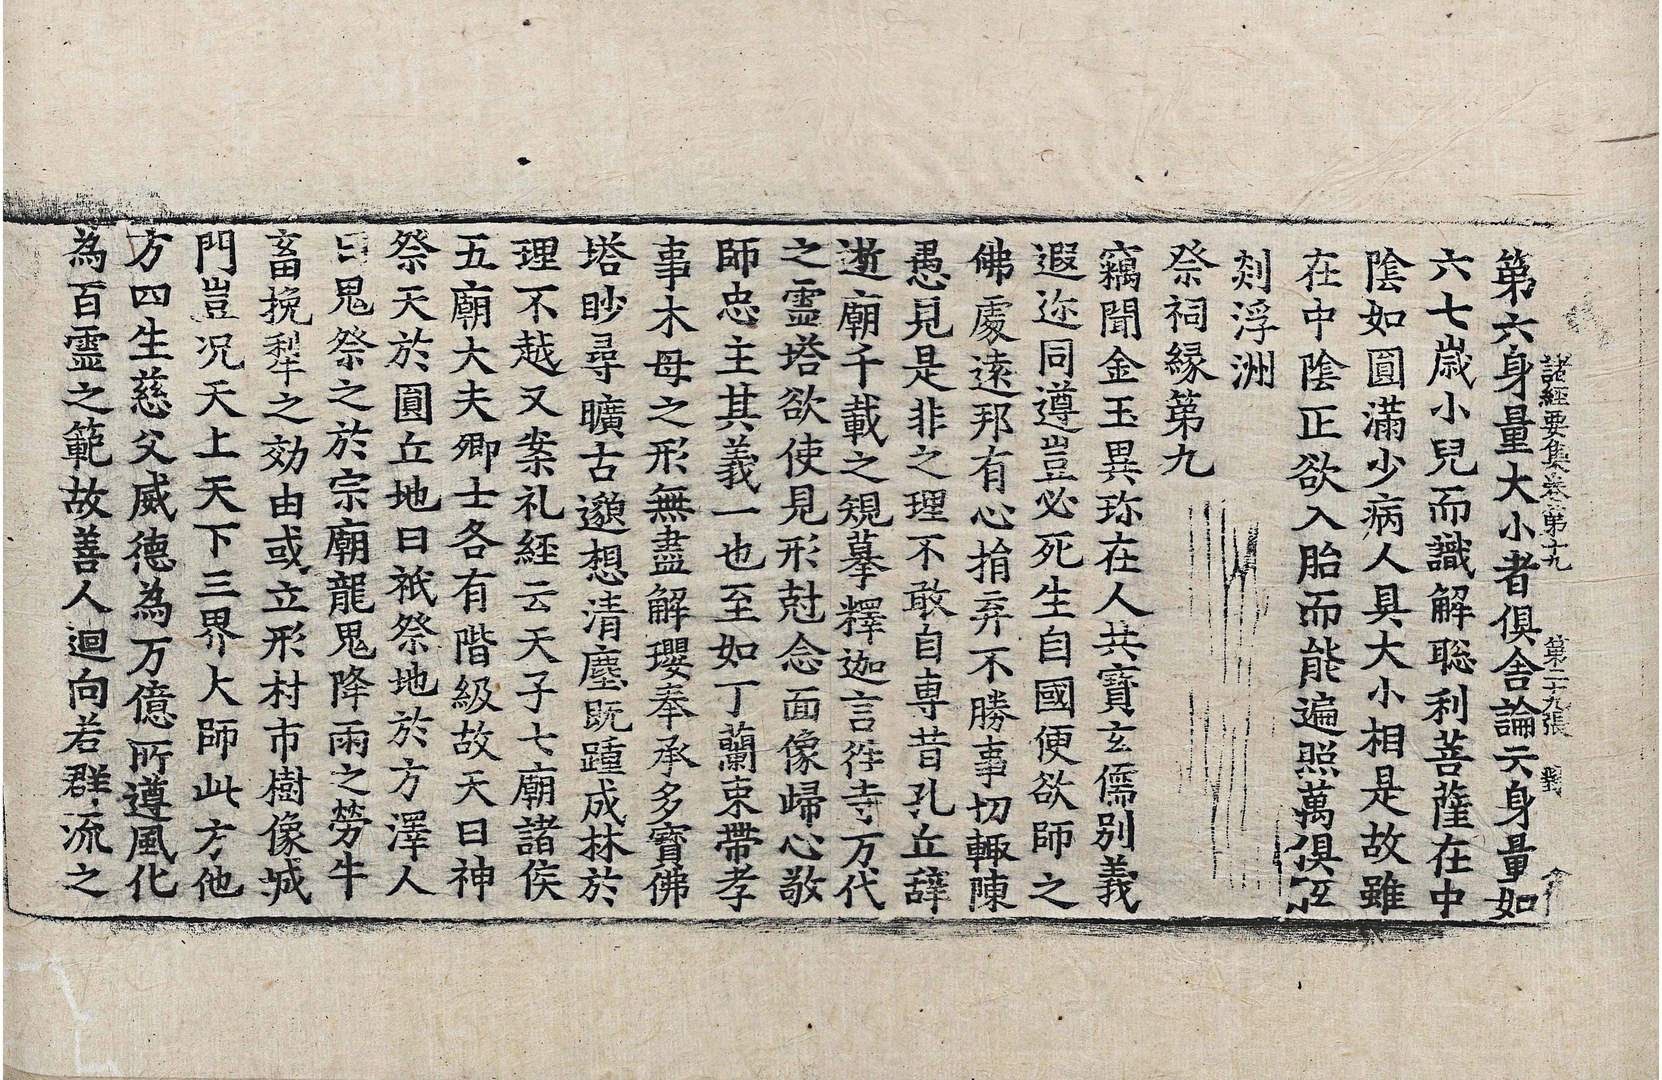 諸經要集卷第十九 第二十九張
第六身量大小者俱舍論云身量如
六七歳小兒而識解聡利菩薩在中
陰如圓滿少病人具大小相是故雖
在中陰正欲入胎而能遍照萬俱
剡浮洲
祭祠縁第九
竊聞金玉異珎在人共寶玄儒別義
遐迩同遵豈必死生自國便欲師之
佛處遠邦有心捐弃不勝事切輙陳
愚見是非之理不敢自専昔孔丘辞
逝廟千載之規摹釋迦言徃寺万代
之靈塔欲使見形尅念面像歸心敬
師忠主其義一也至如丁蘭束帶孝
事木母之形無盡解瓔奉承多寶佛
塔眇尋曠古邈想清塵既踵成林於
理不越又案礼經云天子七廟諸侯
五廟大夫卿士各有階級故天曰神
祭天於圓丘地曰祇祭地於方澤人
曰鬼祭之於宗廟龍鬼降雨之勞牛
畜挽犁之効由或立形村市樹像城
門豈况天上天下三界大師此方他
方四生慈父威德為万億所遵風化
為百靈之範故善人迴向若群流之